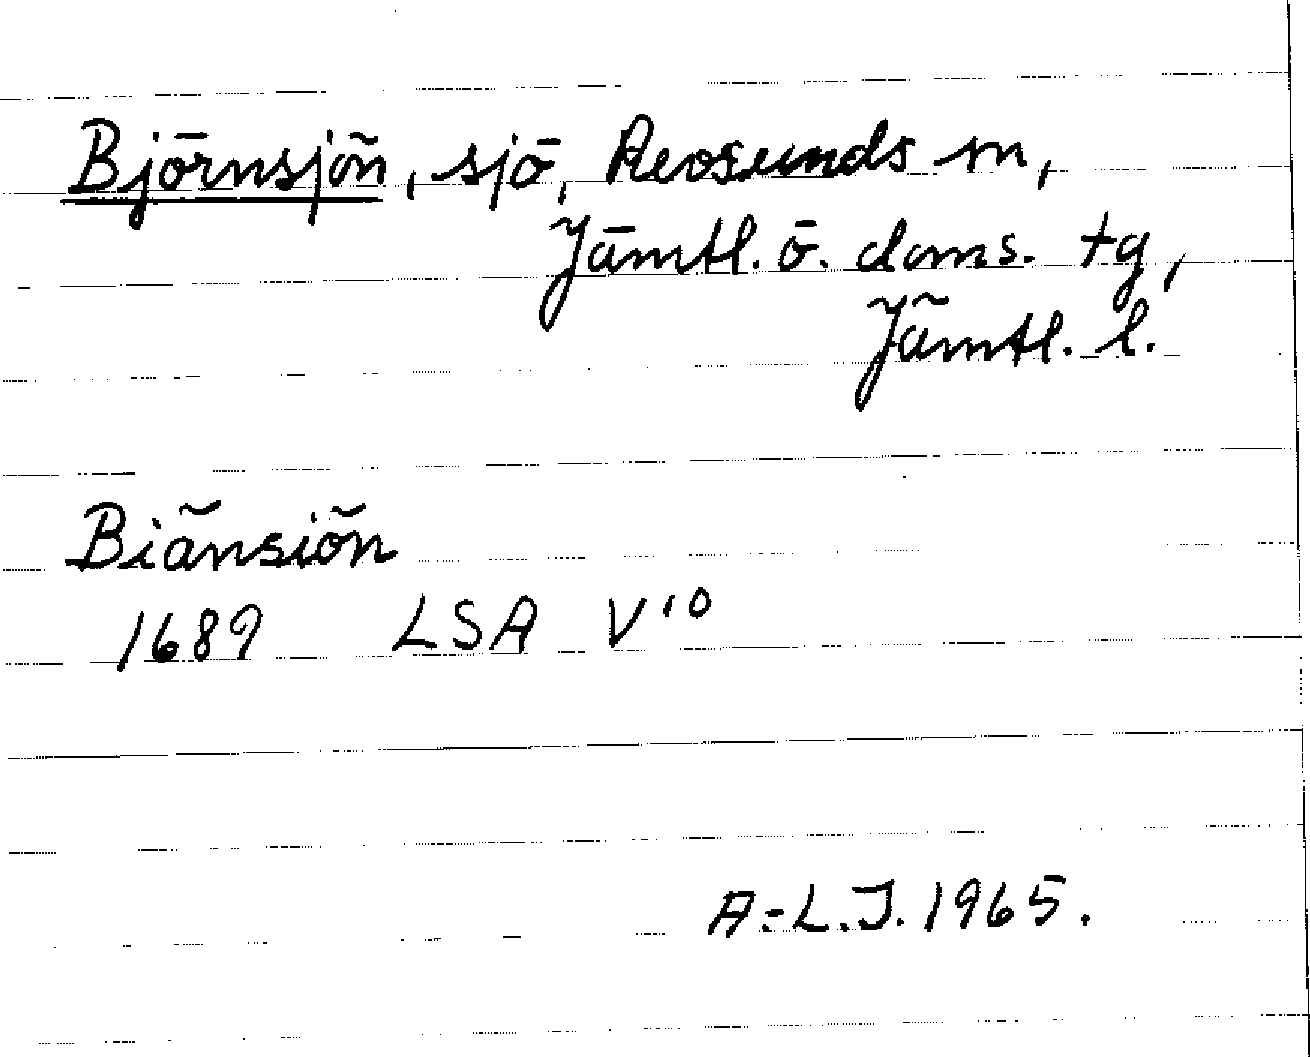 Björnsjön, sjö, Revsunds sn,
Jämtl. ö. doms. tg,
Jämtl. l.
Biänsiön
1689 LSA V10
A-L.J. 1965.